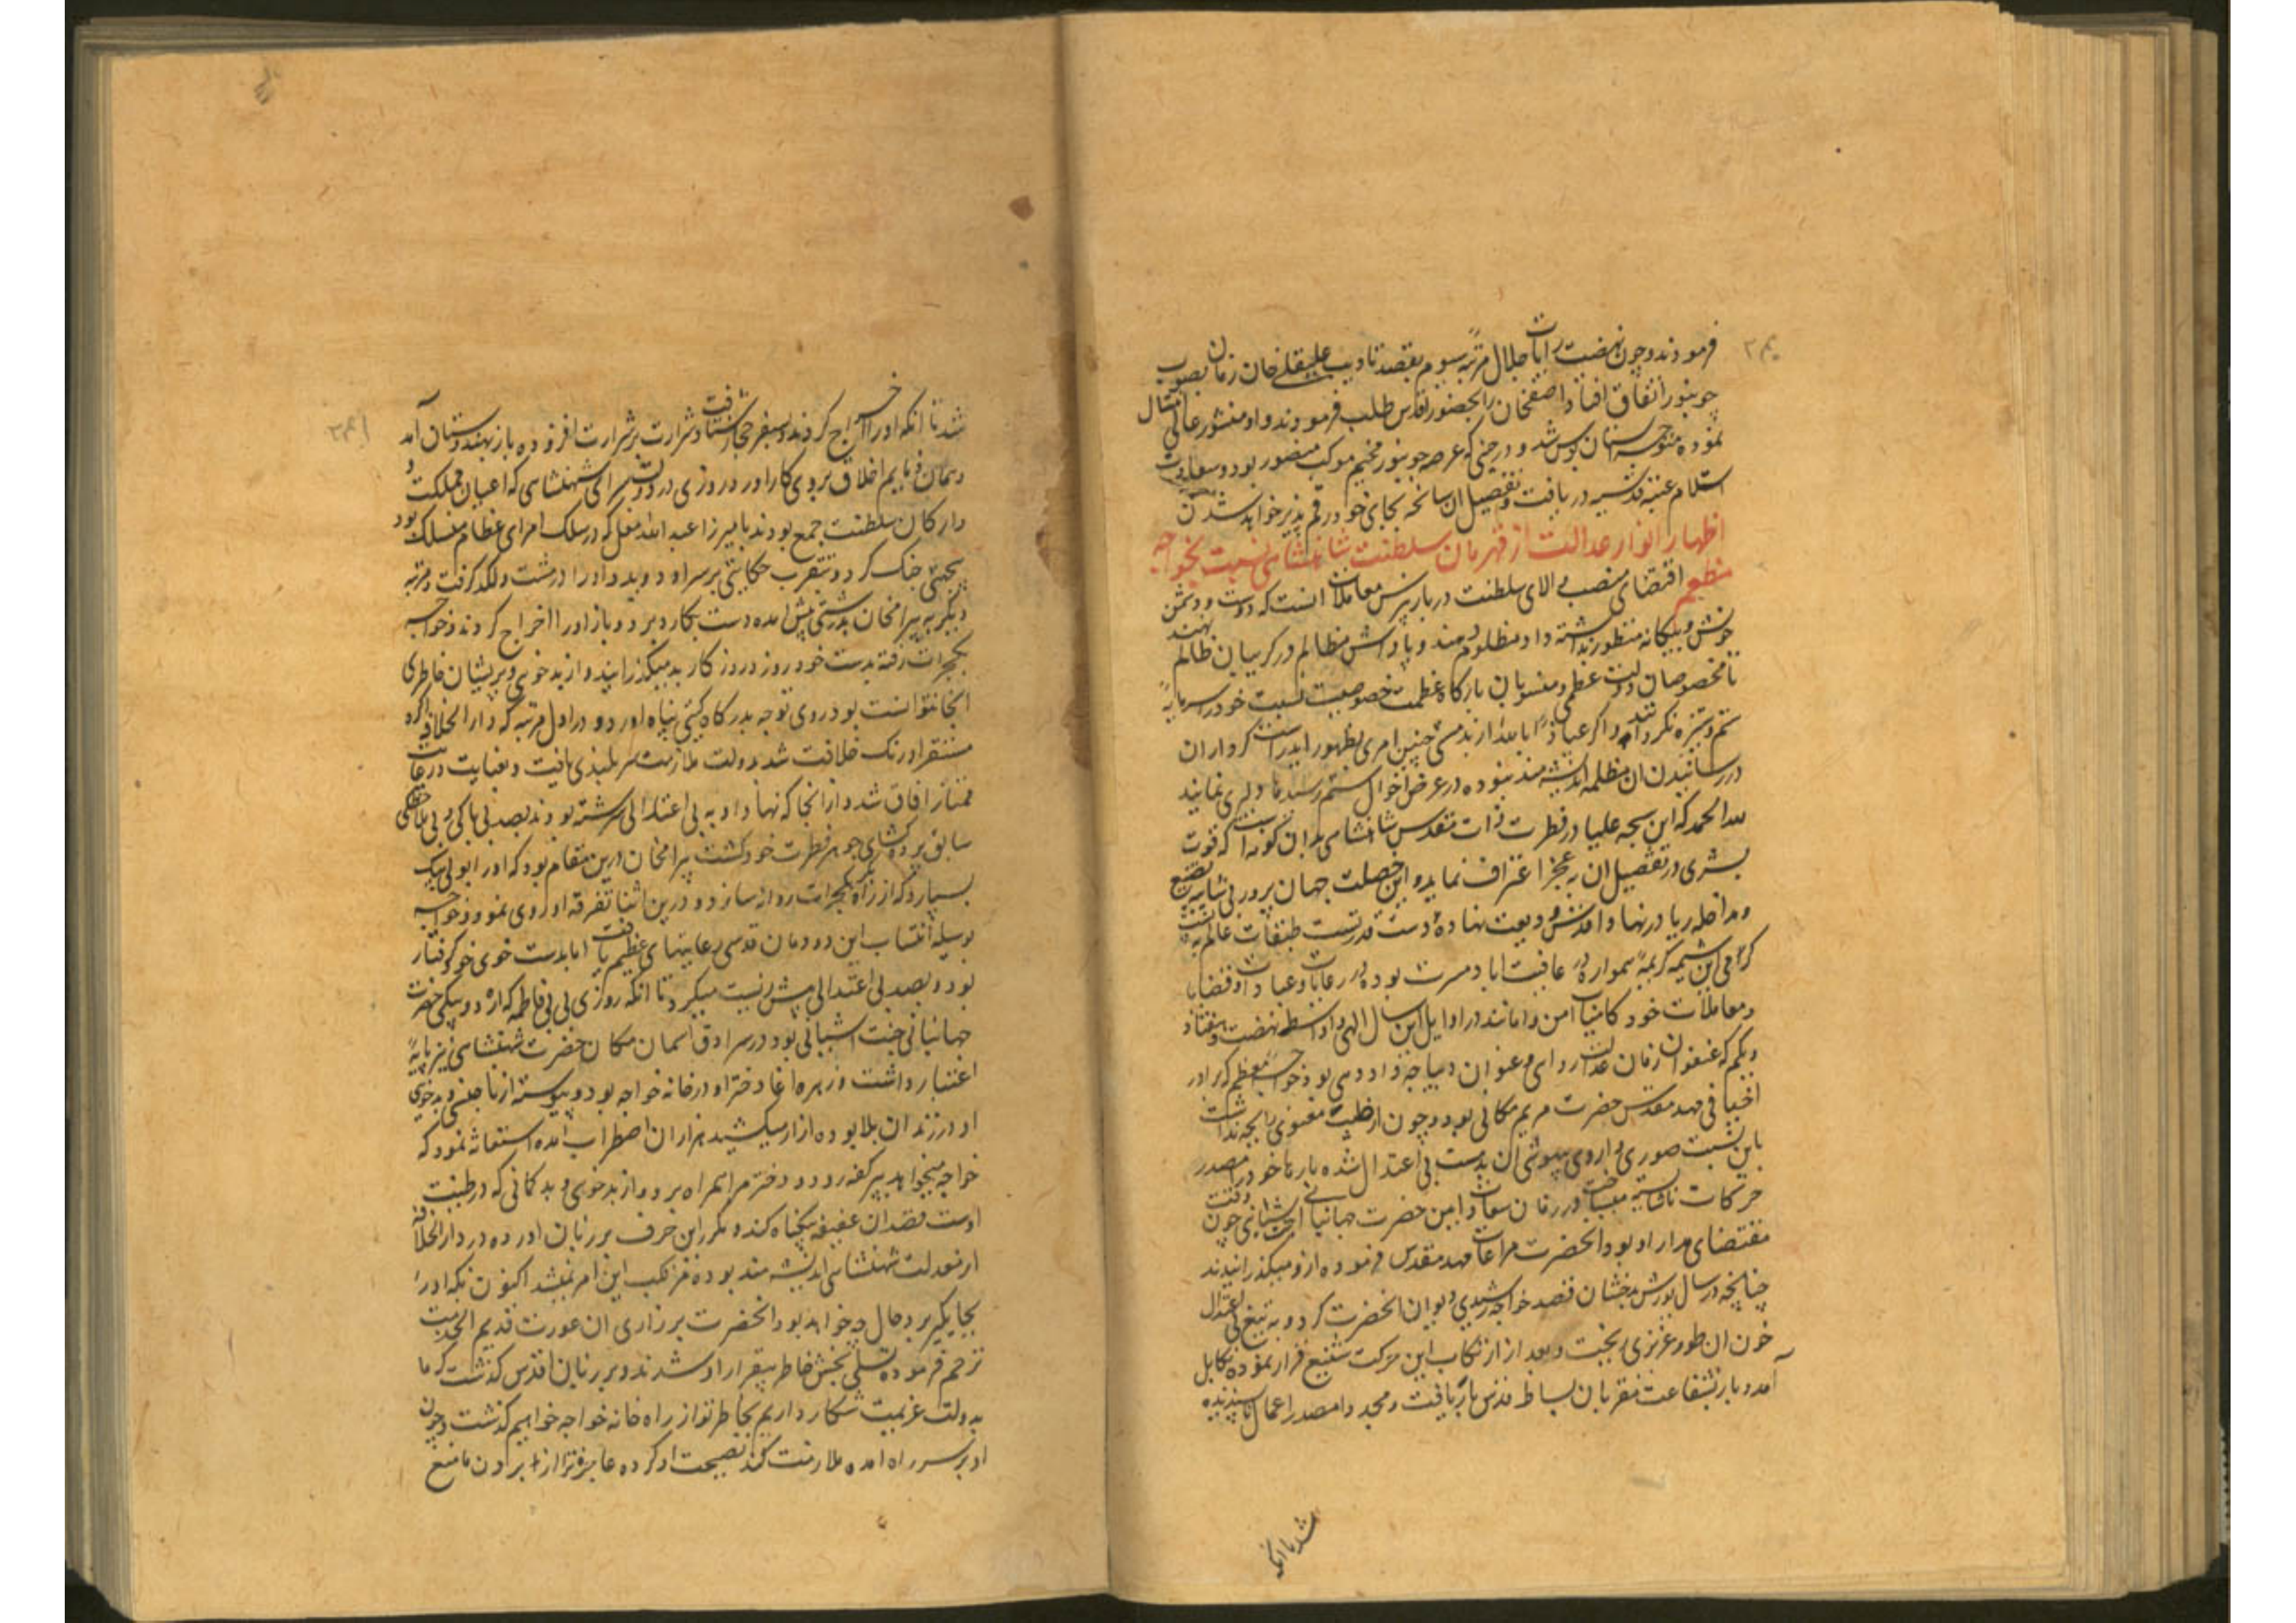 فرمودند و چون نهضت رایات جلال مرتبهٔ سیوم بقصد تادیب علیقلی خان زمان بصوب
جونپور اتفاق افتاد اصفخان را بحضور اقدس طلب فرمودند و او منشور عالی امتثال
نموده متوجه استان بوس شد و در حینی که عرصه جونپور مخیم موکب منصور بود و سعادت
استلام عتبه قدسیه دریافت و تفصیل ان سانحه بجای خود رقم پذیر خواهد شد
اظهار انوار عدالت از قهرمان سلطنت شاهنشاهی نسبت بخواجه
معظم اقتضای منصب والای سلطنت در بار پرس معاملات انست که دوست و دشمن
خویش و بیکانه منظور نداشته داد مظلوم دهند و پاداش مظالم در کریبان ظالم نهند
تا مخصوصان دولت عظمی و منسوبان بارکاه عظمت خصوصیت نسبت خود را سرمایهٔ
ستم و ستیزه نکردانند و اکر عیاذا بالله از بدمستی چنین امری بظهور اید راست کرداران
در رسانیدن ان مظلمه اندیشه مند نبوده در عرض احوال ستم رسیدها دلیری نمایند
لله الحمد که این سجیه علیا در فطرت ذات مقدس شاهنشاهی بدان کونه است که قوت
بشری در تفصیل ان بعجز اعتراف نماید و این خصلت جهان پرور بی شایبه تصنع
و مداخله ریا در نهاد اقدس ودیعت نهادهٔ دست قدرتست طبقات عالم به
کرامی این شیمه کریمه همواره در عافیت اباد مسرت بوده در رعایات و عبادات و قضایا
و معاملات خود کامیاب امن و امانند در اوایل این سال الهی و اواسط نهصد و هفتاد
و یکم که عنفوان زمان عدالت روایی و عنوان دیباجه داد دهی بود خواجه معظم که برادر
اخیافی مهد مقدس حضرت مریم مکانی بود و چون از طینت معنوی رایحه نداشت
باین نسبت صوری و داروی بیهوشی ان بدمست بی اعتدال شده بارها خود را مصدر
حرکات ناشایسته میساخت در زمان سعادت امین حضرت جهانبانی جنت اشیانی چون وقت
مقتضای مدارا بود انحضرت مراعات مهد مقدس فرموده ازو میکذرانیدند
چنانچه در سال یورش بدخشان قصد خواجه رشیدی دیوان انحضرت کرد و به تیغ بی اعتدالی
خون ان طور عزیزی ریخت و بعد از ارتکاب این حرکت شنیع فرار نموده بکابل
آمد و باز بشفاعت مقربان بساط قدس بار یافت و مجددا مصدر اعمال ناپسندیده
شد تا انکه
شد تا انکه او را اخراج کردند و بسفر حجاز شتافت و شرارت بر شرارت افزوده باز بهندوستان آمد
و همان ذمایم اخلاق بروی کار اورد روزی در دولتسرای شهنشاهی که اعیان مملکت و
ارکان سلطنت جمع بودند با میرزا عبد الله مغل که در سلک امرای عظام منسلک بود
بجهتی جنک کرد و بتقرب حکایتی بر سر او دوید و او را در مشت و لکد کرفت و مرتبه
دیکر به بیرامخان بدرشتی پیش امده دست بکارد برد و باز او را اخراج کردند و خواجه
بکجرات رفته بدست خود روز در روز کار بد میکذرانید و از بد خویی و پریشان خاطری
انجا نتوانست بود روی توجه بدرکاه کیتی پناه اورد و در اول مرتبه که دار الخلافه اکره
مستقر اورنک خلافت شد بدولت ملازمت سر بلندی یافت و بعنایت و رعایت
ممتاز افاق شد و از انجا که نهاد او به بی اعتدالی سرشته بودند بصد بی باکی و بی ملاحظکی
سابق پرده کشای جوهر فطرت خود کشت بیرامخان درین مقام بود که او را بولی بیک
بسپارد که از راه بکر بکجرات روانه سازد و درین اثنا تفرقه او روی نمود و خواجه
بوسیله انتساب این دودمان قدسی رعایتهای عظیم یافت اما بدست خوی خود کرفتار
بود و بصد بی اعتدالی پیش زیست میکرد تا انکه روزی بی بی فاطمه که اردو بیکی حضرت
جهانبانی جنت اشیانی بود در سرادق اسمان مکان حضرت شهنشاهی نیز پایهٔ
اعتبار داشت و زهره اغا دختر او در خانه خواجه بود و پیوسته از ناجنسی و بدخویی
او در زندان بلا بوده ازار میکشید هزاران اضطراب امده استغاثه نمود که
خواجه میخواهد ببرکنه رود و دختر مرا همراه برد و از بد خویی و بدکمانی که در طینت
اوست قصد ان عفیفه بیکناه کند و مکرر این حرف بر زبان اورده در دار الخلافه
از معدلت شهنشاهی اندیشه مند بوده مرتکب این امر نمیشد اکنون که او را
بجای دیکر برد حال چه خواهد بود انحضرت بر زاری ان عورت قدیم الخدمت
ترحم فرموده تسلی بخش خاطر بیقرار او شدند و بر زبان اقدس کذشت که ما
بدولت عزیمت شکار داریم بخاطر تو از راه خانه خواجه خواهیم کذشت و چون
او بر سر راه امده ملازمت کند نصیحت او کرده عاجزه ترا از بردن مانع